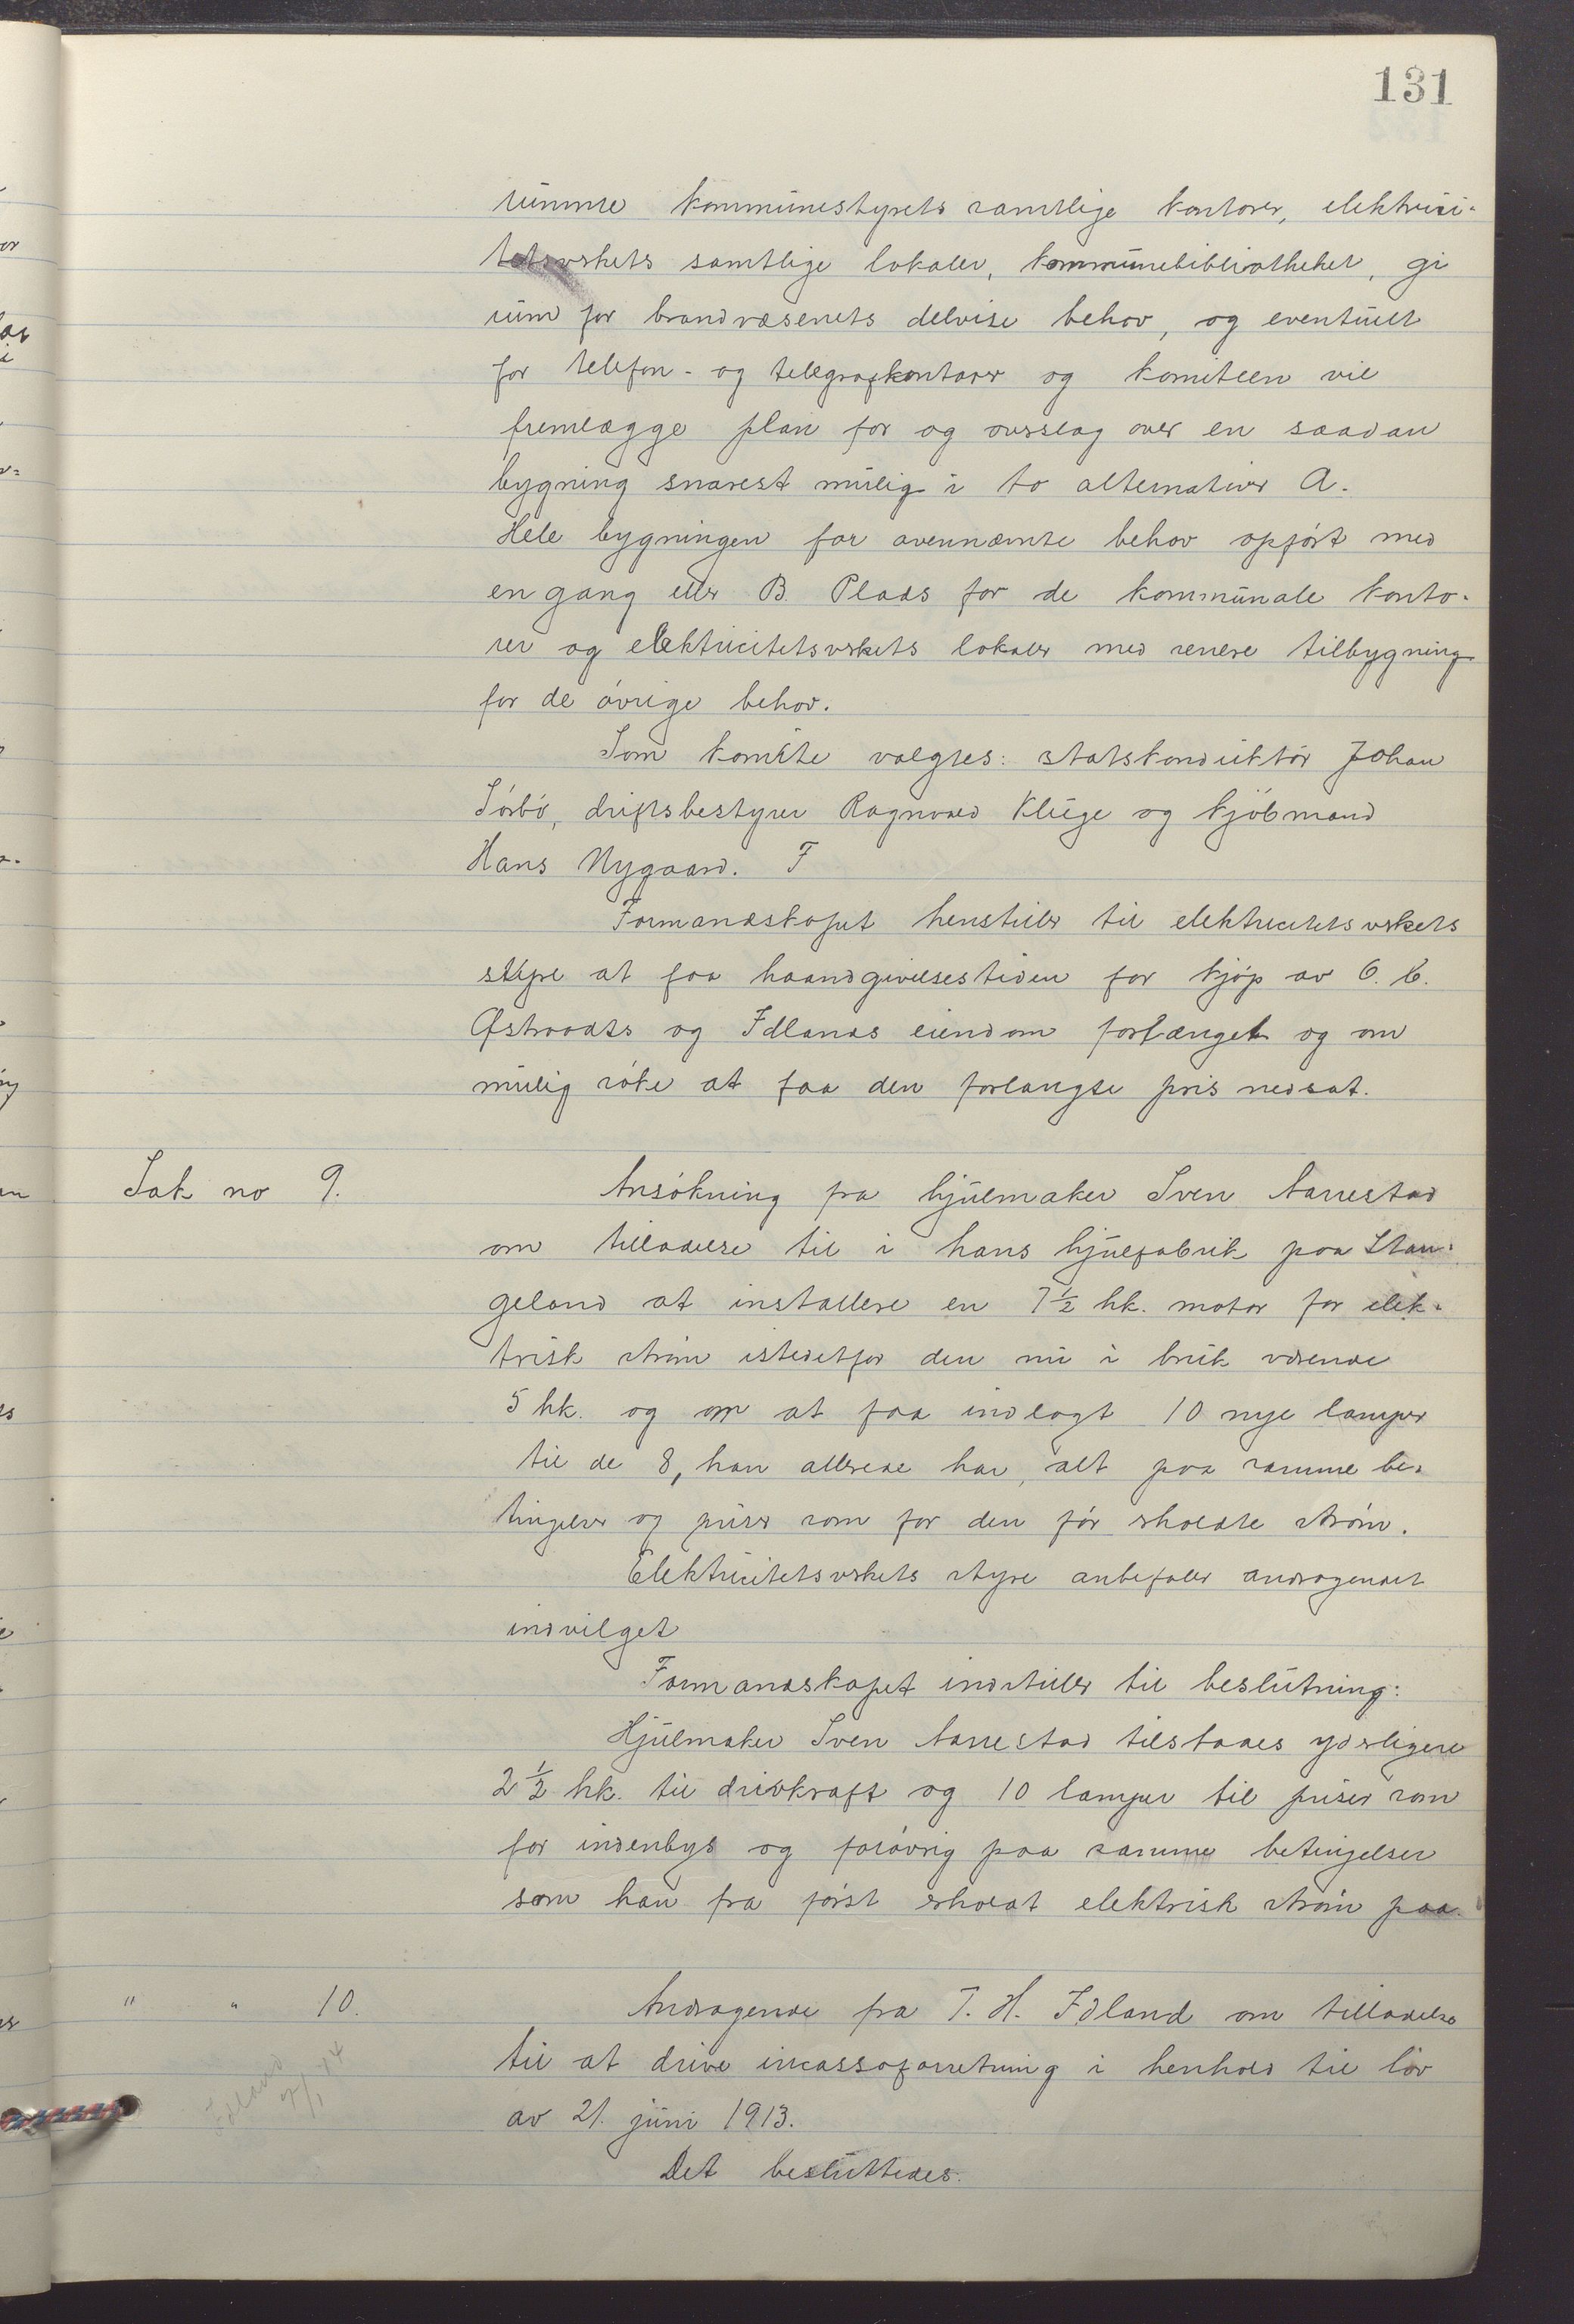 131
rumme kommunestyrets samtlige kontorer, elektrici-
tetsverkets samtlige lokaler, kommunebibliotheket, gi
rum for brandvæsenets delvise behov, og eventuelt
for telefon- og telegrafkontorer og komiteen vil
fremlægge plan for og overslag over en saadan
bygning snarest mulig i to alternativer A.
Hele bygningen for ovennævnte behov opført med
en gang eller B. Plads for de kommunale konto-
rer og elektricitetsverkets lokaler med senere tilbygning
for de øvrige behov.
Som komite valgtes: statskonduktør Johan
Sørbø, driftsbestyrer Ragnvald Kluge og kjøbmand
Hans Nygaard. F
Formandskapet henstiller til elektricitetsverkets
styre at faa haandgivelsestiden for kjøp av O. C.
Østraadts og Idlands eiendom forlænget og om
mulig søke at faa den forlangte pris nedsat.
Sak no 9.
Ansøkning fra hjulmaker Sven Aarrestad
om tilladelse til i hans hjulfabrik paa Stan-
geland at installere en 7 1/2 hk. motor for elek-
trisk strøm istedetfor den nu i bruk værende
5 hk. og om at faa indlagt 10 nye lamper
til de 8, han allerede har, alt paa samme be-
tingelser og priser som for den før erholdte strøm.
Elektricitetsverkets styre anbefaler andragendet
indvilget
Formandskapet indstiller til beslutning:
Hjulmaker Sven Aarrestad tilstaaes yderligere
2 1/2 hk. til drivkraft og 10 lamper til priser som
for indenbys og forøvrig paa samme betingelser
som han fra først erholdt elektrisk strøm paa.
" " 10.
Andragende fra T. H. Idland om tilladelse
til at drive incassoforretning i henhold til lov
av 21. juni 1913.
Det besluttedes: